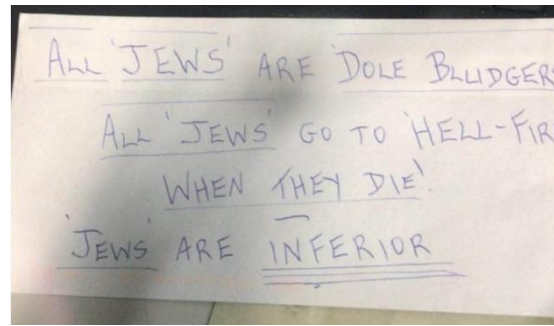 ALL 'JEWS' ARE 'DOLE BLUDGERS
ALL 'JEWS' GO TO 'HELL-FIR
WHEN THEY DIE'!
'JEWS' ARE INFERIOR